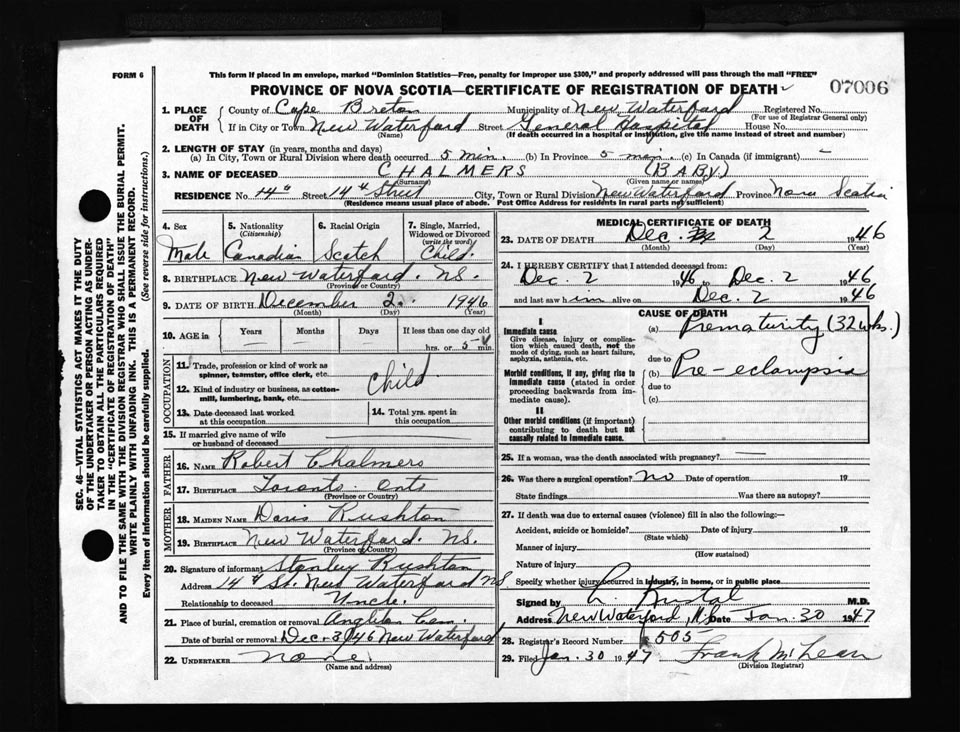 FORM 6
This form if placed in an envelope, marked "Dominion Statistics—Free, penalty for improper use $300," and properly addressed will pass through the mail "FREE"
PROVINCE OF NOVA SCOTIA—CERTIFICATE OF REGISTRATION OF DEATH
07006
1. PLACE OF DEATH
County of Cape Breton Municipality of New Waterford Registered No.
(For use of Registrar General only)
If in City or Town New Waterford Street General Hospital House No.
(Name) (If death occurred in a hospital or institution, give the name instead of street and number)
2. LENGTH OF STAY (in years, months and days)
(a) In City, Town or Rural Division where death occurred 5 min. (b) In Province 5 min. (c) In Canada (if immigrant) –
3. NAME OF DECEASED CHALMERS (BABY)
(Surname) (Given name or names)
RESIDENCE No. 14th Street 14th Street City, Town or Rural Division New Waterford Province Nova Scotia
(Residence means usual place of abode. Post Office Address for residents in rural parts not sufficient)
4. Sex
Male
5. Nationality
(Citizenship)
Canadian
6. Racial Origin
Scotch
7. Single, Married, Widowed or Divorced
(write the word)
Child.
8. BIRTHPLACE New Waterford. NS.
(Province or Country)
9. DATE OF BIRTH December 2. 1946
(Month) (Day) (Year)
10. AGE in
Years
Months
Days
If less than one day old
hrs. or 5 min.
OCCUPATION
11. Trade, profession or kind of work as spinner, teamster, office clerk, etc.
12. Kind of industry or business, as cotton-mill, lumbering, bank, etc.
Child
13. Date deceased last worked at this occupation
14. Total yrs. spent in this occupation
15. If married give name of wife or husband of deceased
FATHER
16. NAME Robert Chalmers
17. BIRTHPLACE Toronto. Ont.
(Province or Country)
MOTHER
18. MAIDEN NAME Doris Rushton
19. BIRTHPLACE New Waterford. NS.
(Province or Country)
20. Signature of informant Stanley Rushton
Address 14th St. New Waterford NS
Relationship to deceased Uncle.
21. Place of burial, cremation or removal Anglican Cem.
Date of burial or removal Dec. 3/46 New Waterford
22. UNDERTAKER none.
(Name and address)
MEDICAL CERTIFICATE OF DEATH
23. DATE OF DEATH Dec. 2 1946
(Month) (Day) (Year)
24. I HEREBY CERTIFY that I attended deceased from:
Dec. 2 1946 to Dec. 2 1946
and last saw him alive on Dec. 2 1946
CAUSE OF DEATH
I
Immediate cause
Give disease, injury or complication which caused death, not the mode of dying, such as heart failure, asphyxia, asthenia, etc.
(a) Prematurity (32 wks.)
due to
Morbid conditions, if any, giving rise to immediate cause (stated in order proceeding backwards from immediate cause).
(b) Pre-eclampsia
due to
(c)
II
Other morbid conditions (if important) contributing to death but not causally related to immediate cause.
25. If a woman, was the death associated with pregnancy? —
26. Was there a surgical operation? no Date of operation 19
State findings Was there an autopsy?
27. If death was due to external causes (violence) fill in also the following:—
Accident, suicide or homicide? Date of injury 19
(State which)
Manner of injury
(How sustained)
Nature of injury
Specify whether injury occurred in industry, in home, or in public place
Signed by M.D.
Address New Waterford, N.S. Date Jan. 30 1947
28. Registrar's Record Number 505
29. Filed Jan. 30 1947 Frank McLean
(Division Registrar)
SEC. 46—VITAL STATISTICS ACT MAKES IT THE DUTY
OF THE UNDERTAKER OR PERSON ACTING AS UNDER-
TAKER TO OBTAIN ALL THE PARTICULARS REQUIRED
IN THE "CERTIFICATE OF REGISTRATION OF DEATH"
AND TO FILE THE SAME WITH THE DIVISION REGISTRAR WHO SHALL ISSUE THE BURIAL PERMIT.
WRITE PLAINLY WITH UNFADING INK. THIS IS A PERMANENT RECORD.
Every item of information should be carefully supplied. (See reverse side for instructions.)